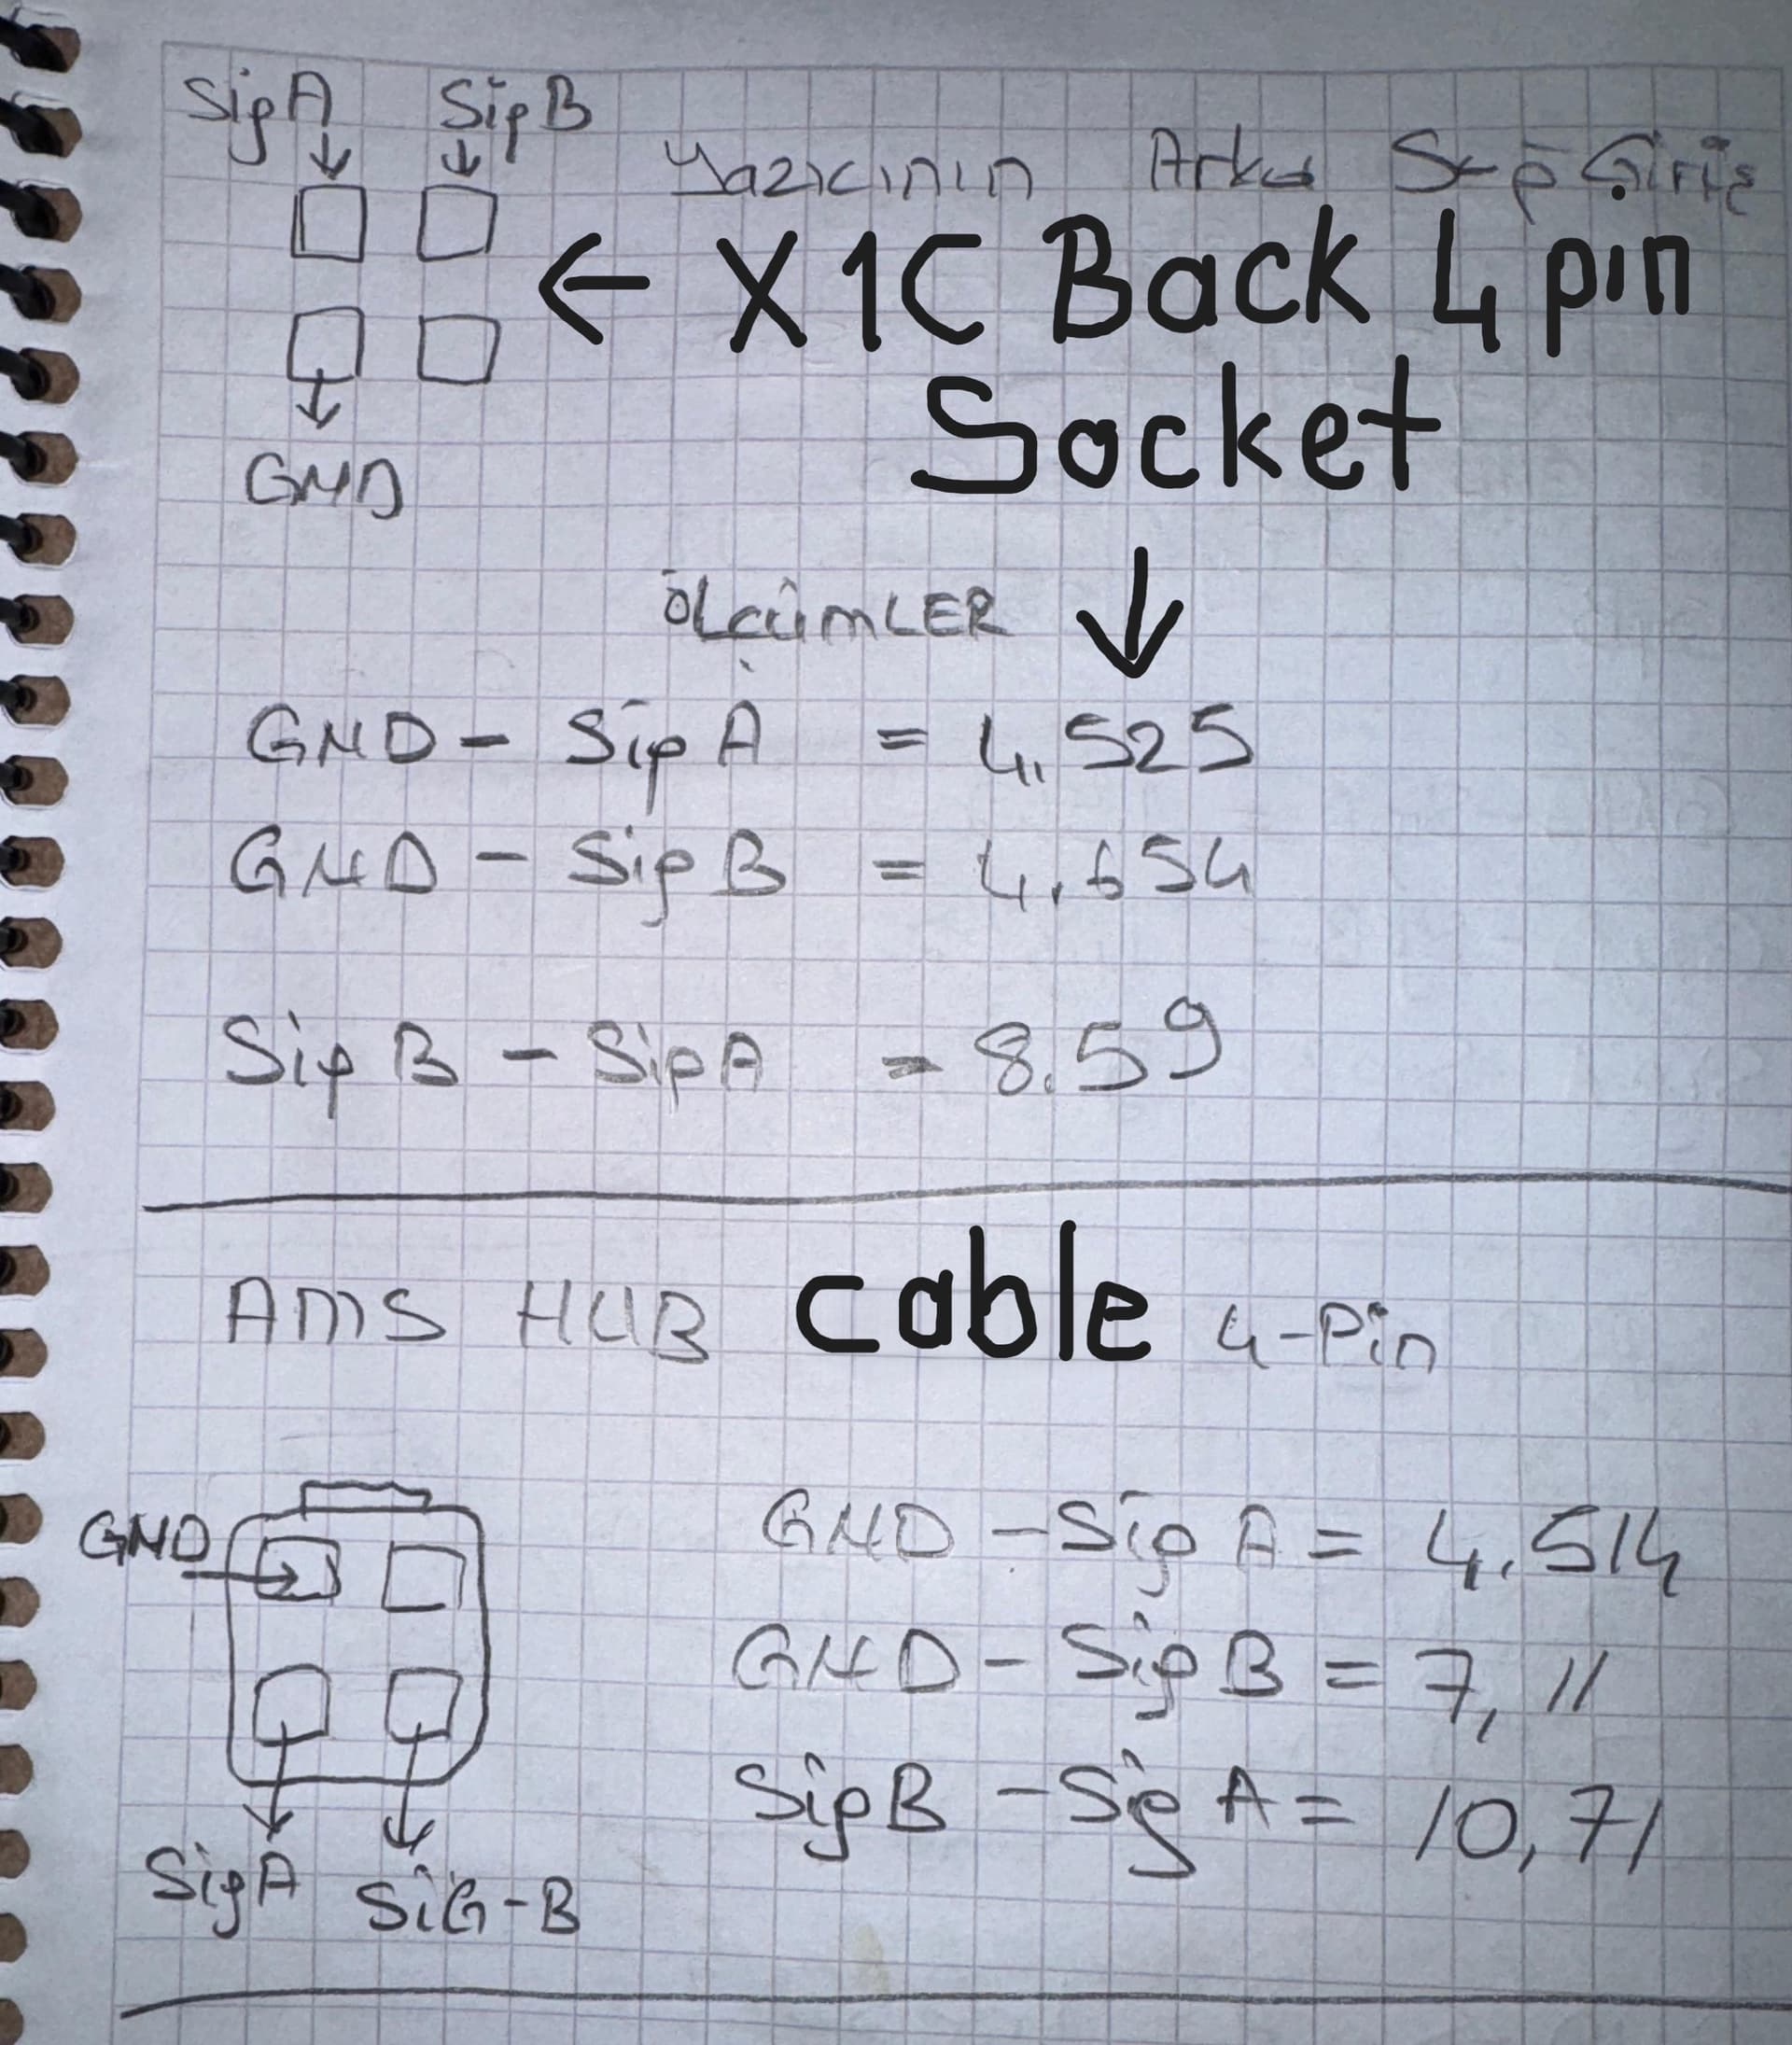 SigA SigB
Yazıcının Arka Sağ Giriş
← X1C Back 4 pin
Socket
GND
ÖLÇÜMLER
GND - Sig A = 4.525
GND - Sig B = 4.654
Sig B - Sig A = 8.59
AMS HUB cable 4-Pin
GND
GND - Sig A = 4.514
GND - Sig B = 7,11
SigB - Sig A = 10,71
SigA SiG-B